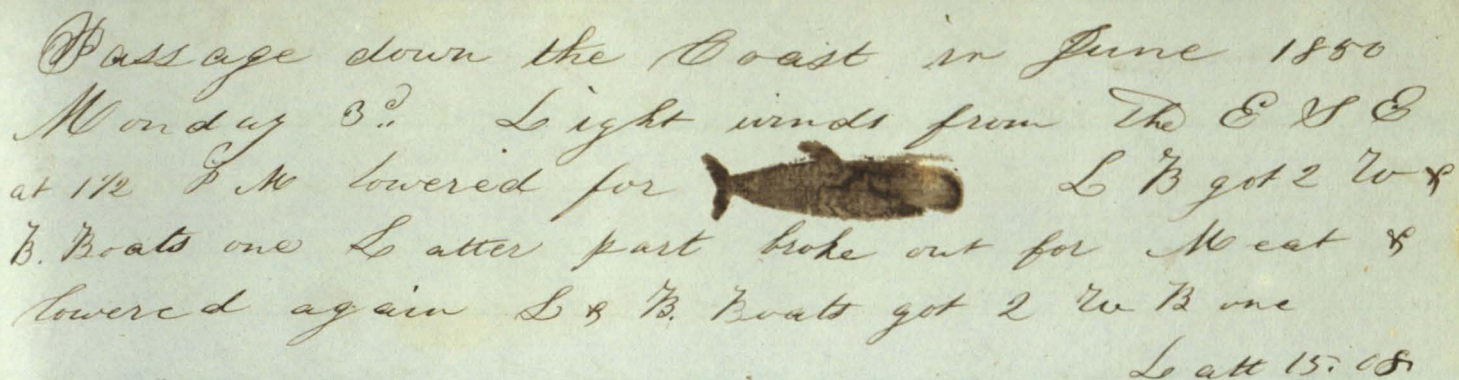 Passage down the Coast in June 1850
Monday 3d Light winds from the E S E
at 1 1/2 P M lowered for L B got 2 W &
B. Boats one Latter part broke out for Meat &
lowered again L & B. Boats got 2 W B one
Latt 15.08